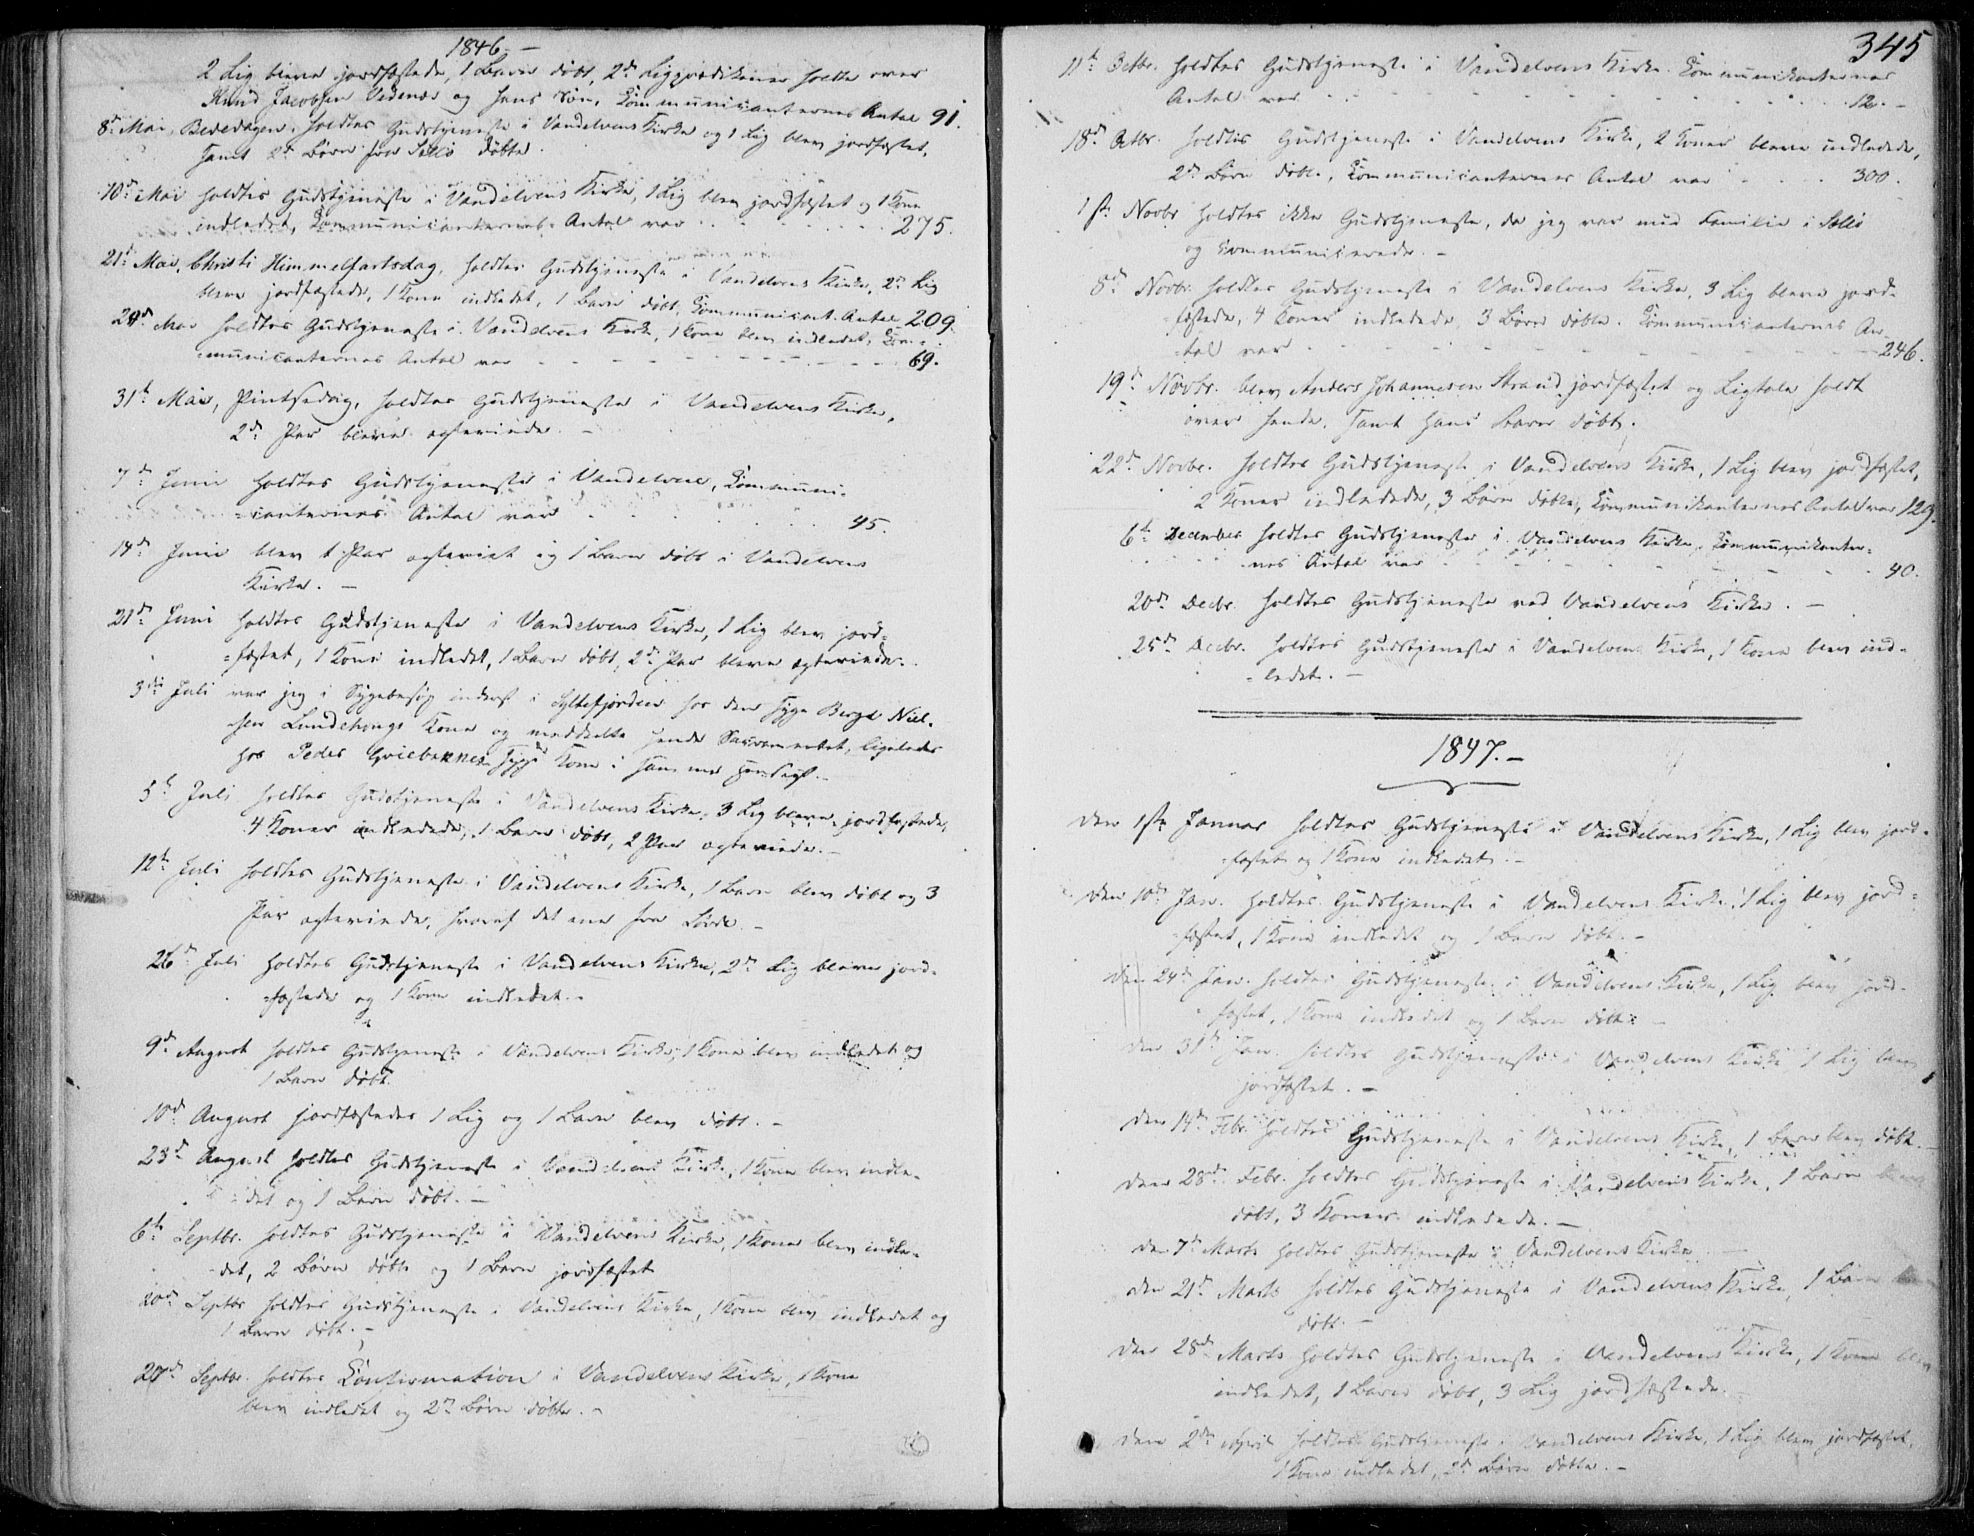 1846.—
2 Lig bleve jordfæstede, 1 Barn døbt, 2de Ligprædikener holdte over
Knud Jacobsen Vedenæs og hans Søn, Communicanternes Antal 91.
8de Mai, Bededagen, holdtes Gudstjeneste i Vandelvens Kirke og 1 Lig blev jordfæstet,
samt 2de Børn døbte.
10de Mai holdtes Gudstjeneste i Vandelvens Kirke, 1 Lig blev jordfæstet og 1 Kone
indledet, Communicanternes Antal var . . . 275.
21de Mai, Christi Himmelfartsdag, holdtes Gudstjeneste i Vandelvens Kirke, 2de Lig
bleve jordfæstede, 1 Kone indledet, 1 Barn døbt, Communicant. Antal 209.
24de Mai holdtes Gudstjeneste i Vandelvens Kirke, 1 Kone blev indledet, Com-
=municanternes Antal var - - - 69.
31te Mai, Pintsedag, holdtes Gudstjeneste i Vandelvens Kirke,
2de Par bleve egteviede. —
7de Juni holdtes Gudstjeneste i Vandelven, Communi-
=canternes Antal var . . . 45.
14de Juni blev 1 Par egteviet og 1 Barn døbt i Vandelvens
Kirke. —
21de Juni holdtes Gudstjeneste i Vandelvens Kirke, 1 Lig blev jord-
=fæstet, 1 Kone indledet, 1 Barn døbt, 2de Par bleve egteviede.
3die Juli var jeg i Sygebesøg inderst i Syltefjorden hos den syge Berge Niel-
sen Kone og meddeelte hende Sacramentet, ligeledes
hos Peder syge Kone i samme Hensigt.—
5te Juli holdtes Gudstjeneste i Vandelvens Kirke, 3 Lig bleve jordfæstede,
4 Koner indledede, 1 Barn døbt, 2 Par egteviede.—
12te Juli holdtes Gudstjeneste i Vandelvens Kirke, 1 Barn blev døbt og 3
Par egteviede, hvoraf det ene fra —
26de Juli holdtes Gudstjeneste i Vandelvens Kirke, 2de Lig bleve jord-
=fæstede og 1 Kone indledet.—
9de August holdtes Gudstjeneste i Vandelvens Kirke, 1 Kone blev indledet og
1 Barn døbt.
10de August jordfæstedes 1 Lig og 1 Barn blev døbt. —
23de August holdtes Gudstjeneste i Vandelvens Kirke, 1 Kone blev indle-
=det og 1 Barn døbt. —
6te Septbr. holdtes Gudstjeneste i Vandelvens Kirke, 1 Kone blev indle-
=det, 2 Børn døbte og 1 Barn jordfæstet
20de Septbr holdtes Gudstjeneste i Vandelvens Kirke, 1 Kone blev indledet og
1 Barn døbt. —
27de Septbr. holdtes Confirmation i Vandelvens Kirke, 1 Kone
blev indledet og 2de Børn døbte. —
345
11te Octbr. holdtes Gudstjeneste i Vandelvens Kirke. Communikanternes
Antal var . . . 12. —
18de Octbr. holdtes Gudstjeneste i Vandelvens Kirke, 2 Koner bleve indledede,
2de Børn døbte, Communicanternes Antal var . . . 300.
1ste Novbr holdtes ikke Gudstjeneste, da jeg var med Familie i
og communicerede. —
8de Novbr. holdtes Gudstjeneste i Vandelvens Kirke, 3 Lig bleve jord-
=fæstede, 4 Koner indledede, 3 Børn døbte. Communicanternes An-
=tal var - - - 246.
19de Novbr. blev Anders Johannesen Strand jordfæstet og Ligtale holdt
over hende, samt hans Barn døbt.
22de Novbr. holdtes Gudstjeneste i Vandelvens Kirke, 1 Lig blev jordfæstet,
2 Koner indledede, 3 Børn døbte, Communikanternes Antal var 129.
6te December holdtes Gudstjeneste i Vandelvens Kirke, Communikanter-
nes Antal var - - - 40.
20de Decbr. holdtes Gudstjeneste ved Vandelvens Kirke. —
25de Decbr. holdtes Gudstjeneste i Vandelvens Kirke, 1 Kone blev ind-
=ledet. —
1847.—
Den 1ste Januar holdtes Gudstjeneste i Vandelvens Kirke, 1 Lig blev jord-
=fæstet og 1 Kone indledet. —
Den 10de Jan. holdtes Gudstjeneste i Vandelvens Kirke, 1 Lig blev jord-
=fæstet, 1 Kone indledet og 1 Barn døbt. —
Den 24de Jan. holdtes Gudstjeneste i Vandelvens Kirke, 1 Lig blev jord-
=fæstet, 1 Kone indledet og 1 Barn døbt. —
Den 31te Jan. holdtes Gudstjeneste i Vandelvens Kirke 1 Lig blev
jordfæstet. —
Den 14de Febr. holdtes Gudstjeneste i Vandelvens Kirke, 1 Barn blev døbt.
Den 28de Febr. holdtes Gudstjeneste i Vandelvens Kirke, 1 Barn blev
døbt, 3 Koner indledede. —
Den 7de Marts holdtes Gudstjeneste i Vandelvens Kirke —
Den 21de Marts holdtes Gudstjeneste i Vandelvens Kirke, 1 Barn blev
døbt. —
Den 28de Marts holdtes Gudstjeneste i Vandelvens Kirke, 1 Kone blev
indledet, 1 Barn døbt, 3 Lig jordfæstede.
Den 2den April holdtes Gudstjeneste i Vandelvens Kirke, 1 Lig blev jordfæstet,
1 Kone indledet, 2de Børn døbte. —